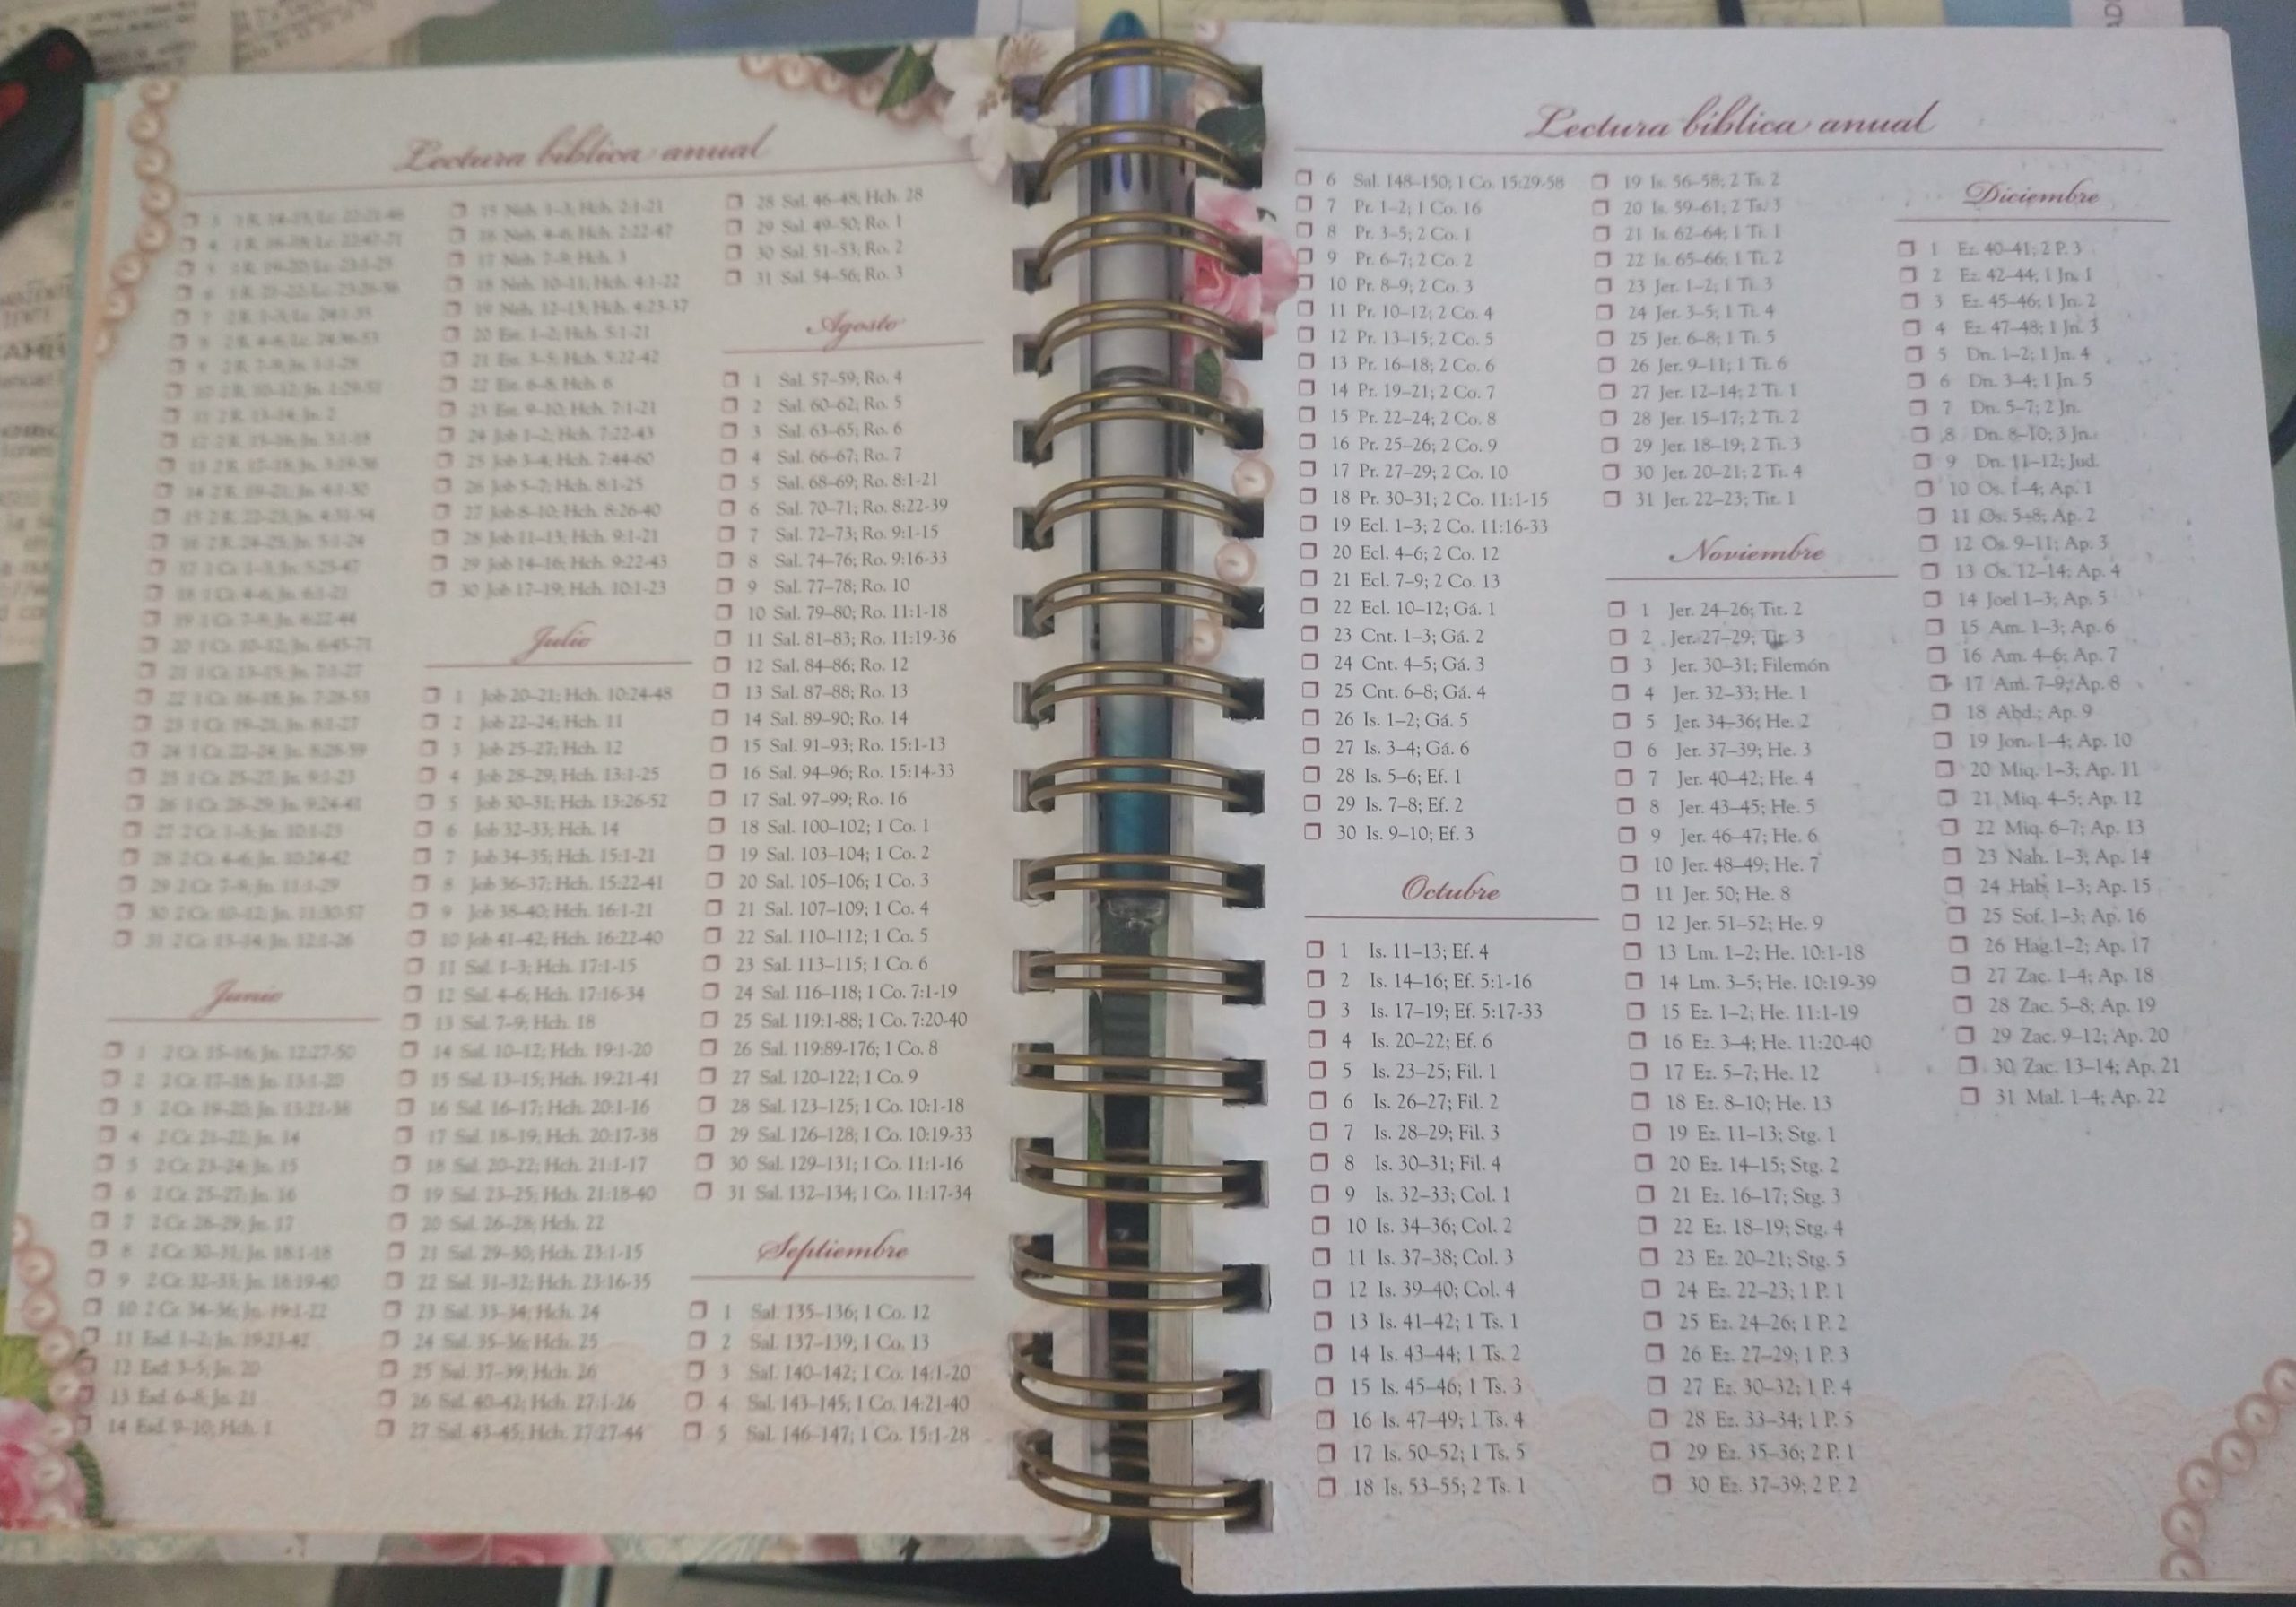 Lectura bíblica anual
31 2 Cr. 13-14; Jn. 12:1-26
Junio
1 2 Cr. 15-16; Jn. 12:27-50
2 2 Cr. 17-18; Jn. 13:1-20
3 2 Cr. 19-20; Jn. 13:21-38
4 2 Cr. 21-22; Jn. 14
5 2 Cr. 23-24; Jn. 15
6 2 Cr. 25-27; Jn. 16
7 2 Cr. 28-29; Jn. 17
8 2 Cr. 30-31; Jn. 18:1-18
9 2 Cr. 32-33; Jn. 18:19-40
10 2 Cr. 34-36; Jn. 19:1-22
11 Esd. 1-2; Jn. 19:23-42
12 Esd. 3-5; Jn. 20
13 Esd. 6-8; Jn. 21
14 Esd. 9-10; Hch. 1
15 Neh. 1-3; Hch. 2:1-21
16 Neh. 4-6; Hch. 2:22-47
17 Neh. 7-9; Hch. 3
18 Neh. 10-11; Hch. 4:1-22
19 Neh. 12-13; Hch. 4:23-37
20 Est. 1-2; Hch. 5:1-21
21 Est. 3-5; Hch. 5:22-42
22 Est. 6-8; Hch. 6
23 Est. 9-10; Hch. 7:1-21
24 Job 1-2; Hch. 7:22-43
25 Job 3-4; Hch. 7:44-60
26 Job 5-7; Hch. 8:1-25
27 Job 8-10; Hch. 8:26-40
28 Job 11-13; Hch. 9:1-21
29 Job 14-16; Hch. 9:22-43
30 Job 17-19; Hch. 10:1-23
Julio
1 Job 20-21; Hch. 10:24-48
2 Job 22-24; Hch. 11
3 Job 25-27; Hch. 12
4 Job 28-29; Hch. 13:1-25
5 Job 30-31; Hch. 13:26-52
6 Job 32-33; Hch. 14
7 Job 34-35; Hch. 15:1-21
8 Job 36-37; Hch. 15:22-41
9 Job 38-40; Hch. 16:1-21
10 Job 41-42; Hch. 16:22-40
11 Sal. 1-3; Hch. 17:1-15
12 Sal. 4-6; Hch. 17:16-34
13 Sal. 7-9; Hch. 18
14 Sal. 10-12; Hch. 19:1-20
15 Sal. 13-15; Hch. 19:21-41
16 Sal. 16-17; Hch. 20:1-16
17 Sal. 18-19; Hch. 20:17-38
18 Sal. 20-22; Hch. 21:1-17
19 Sal. 23-25; Hch. 21:18-40
20 Sal. 26-28; Hch. 22
21 Sal. 29-30; Hch. 23:1-15
22 Sal. 31-32; Hch. 23:16-35
23 Sal. 33-34; Hch. 24
24 Sal. 35-36; Hch. 25
25 Sal. 37-39; Hch. 26
26 Sal. 40-42; Hch. 27:1-26
27 Sal. 43-45; Hch. 27:27-44
28 Sal. 46-48; Hch. 28
29 Sal. 49-50; Ro. 1
30 Sal. 51-53; Ro. 2
31 Sal. 54-56; Ro. 3
Agosto
1 Sal. 57-59; Ro. 4
2 Sal. 60-62; Ro. 5
3 Sal. 63-65; Ro. 6
4 Sal. 66-67; Ro. 7
5 Sal. 68-69; Ro. 8:1-21
6 Sal. 70-71; Ro. 8:22-39
7 Sal. 72-73; Ro. 9:1-15
8 Sal. 74-76; Ro. 9:16-33
9 Sal. 77-78; Ro. 10
10 Sal. 79-80; Ro. 11:1-18
11 Sal. 81-83; Ro. 11:19-36
12 Sal. 84-86; Ro. 12
13 Sal. 87-88; Ro. 13
14 Sal. 89-90; Ro. 14
15 Sal. 91-93; Ro. 15:1-13
16 Sal. 94-96; Ro. 15:14-33
17 Sal. 97-99; Ro. 16
18 Sal. 100-102; 1 Co. 1
19 Sal. 103-104; 1 Co. 2
20 Sal. 105-106; 1 Co. 3
21 Sal. 107-109; 1 Co. 4
22 Sal. 110-112; 1 Co. 5
23 Sal. 113-115; 1 Co. 6
24 Sal. 116-118; 1 Co. 7:1-19
25 Sal. 119:1-88; 1 Co. 7:20-40
26 Sal. 119:89-176; 1 Co. 8
27 Sal. 120-122; 1 Co. 9
28 Sal. 123-125; 1 Co. 10:1-18
29 Sal. 126-128; 1 Co. 10:19-33
30 Sal. 129-131; 1 Co. 11:1-16
31 Sal. 132-134; 1 Co. 11:17-34
Septiembre
1 Sal. 135-136; 1 Co. 12
2 Sal. 137-139; 1 Co. 13
3 Sal. 140-142; 1 Co. 14:1-20
4 Sal. 143-145; 1 Co. 14:21-40
5 Sal. 146-147; 1 Co. 15:1-28
Lectura bíblica anual
6 Sal. 148-150; 1 Co. 15:29-58
7 Pr. 1-2; 1 Co. 16
8 Pr. 3-5; 2 Co. 1
9 Pr. 6-7; 2 Co. 2
10 Pr. 8-9; 2 Co. 3
11 Pr. 10-12; 2 Co. 4
12 Pr. 13-15; 2 Co. 5
13 Pr. 16-18; 2 Co. 6
14 Pr. 19-21; 2 Co. 7
15 Pr. 22-24; 2 Co. 8
16 Pr. 25-26; 2 Co. 9
17 Pr. 27-29; 2 Co. 10
18 Pr. 30-31; 2 Co. 11:1-15
19 Ecl. 1-3; 2 Co. 11:16-33
20 Ecl. 4-6; 2 Co. 12
21 Ecl. 7-9; 2 Co. 13
22 Ecl. 10-12; Gá. 1
23 Cnt. 1-3; Gá. 2
24 Cnt. 4-5; Gá. 3
25 Cnt. 6-8; Gá. 4
26 Is. 1-2; Gá. 5
27 Is. 3-4; Gá. 6
28 Is. 5-6; Ef. 1
29 Is. 7-8; Ef. 2
30 Is. 9-10; Ef. 3
Octubre
1 Is. 11-13; Ef. 4
2 Is. 14-16; Ef. 5:1-16
3 Is. 17-19; Ef. 5:17-33
4 Is. 20-22; Ef. 6
5 Is. 23-25; Fil. 1
6 Is. 26-27; Fil. 2
7 Is. 28-29; Fil. 3
8 Is. 30-31; Fil. 4
9 Is. 32-33; Col. 1
10 Is. 34-36; Col. 2
11 Is. 37-38; Col. 3
12 Is. 39-40; Col. 4
13 Is. 41-42; 1 Ts. 1
14 Is. 43-44; 1 Ts. 2
15 Is. 45-46; 1 Ts. 3
16 Is. 47-49; 1 Ts. 4
17 Is. 50-52; 1 Ts. 5
18 Is. 53-55; 2 Ts. 1
19 Is. 56-58; 2 Ts. 2
20 Is. 59-61; 2 Ts. 3
21 Is. 62-64; 1 Ti. 1
22 Is. 65-66; 1 Ti. 2
23 Jer. 1-2; 1 Ti. 3
24 Jer. 3-5; 1 Ti. 4
25 Jer. 6-8; 1 Ti. 5
26 Jer. 9-11; 1 Ti. 6
27 Jer. 12-14; 2 Ti. 1
28 Jer. 15-17; 2 Ti. 2
29 Jer. 18-19; 2 Ti. 3
30 Jer. 20-21; 2 Ti. 4
31 Jer. 22-23; Tit. 1
Noviembre
1 Jer. 24-26; Tit. 2
2 Jer. 27-29; Tit. 3
3 Jer. 30-31; Filemón
4 Jer. 32-33; He. 1
5 Jer. 34-36; He. 2
6 Jer. 37-39; He. 3
7 Jer. 40-42; He. 4
8 Jer. 43-45; He. 5
9 Jer. 46-47; He. 6
10 Jer. 48-49; He. 7
11 Jer. 50; He. 8
12 Jer. 51-52; He. 9
13 Lm. 1-2; He. 10:1-18
14 Lm. 3-5; He. 10:19-39
15 Ez. 1-2; He. 11:1-19
16 Ez. 3-4; He. 11:20-40
17 Ez. 5-7; He. 12
18 Ez. 8-10; He. 13
19 Ez. 11-13; Stg. 1
20 Ez. 14-15; Stg. 2
21 Ez. 16-17; Stg. 3
22 Ez. 18-19; Stg. 4
23 Ez. 20-21; Stg. 5
24 Ez. 22-23; 1 P. 1
25 Ez. 24-26; 1 P. 2
26 Ez. 27-29; 1 P. 3
27 Ez. 30-32; 1 P. 4
28 Ez. 33-34; 1 P. 5
29 Ez. 35-36; 2 P. 1
30 Ez. 37-39; 2 P. 2
Diciembre
1 Ez. 40-41; 2 P. 3
2 Ez. 42-44; 1 Jn. 1
3 Ez. 45-46; 1 Jn. 2
4 Ez. 47-48; 1 Jn. 3
5 Dn. 1-2; 1 Jn. 4
6 Dn. 3-4; 1 Jn. 5
7 Dn. 5-7; 2 Jn.
8 Dn. 8-10; 3 Jn.
9 Dn. 11-12; Jud.
10 Os. 1-4; Ap. 1
11 Os. 5-8; Ap. 2
12 Os. 9-11; Ap. 3
13 Os. 12-14; Ap. 4
14 Joel 1-3; Ap. 5
15 Am. 1-3; Ap. 6
16 Am. 4-6; Ap. 7
17 Am. 7-9; Ap. 8
18 Abd.; Ap. 9
19 Jon. 1-4; Ap. 10
20 Miq. 1-3; Ap. 11
21 Miq. 4-5; Ap. 12
22 Miq. 6-7; Ap. 13
23 Nah. 1-3; Ap. 14
24 Hab. 1-3; Ap. 15
25 Sof. 1-3; Ap. 16
26 Hag.1-2; Ap. 17
27 Zac. 1-4; Ap. 18
28 Zac. 5-8; Ap. 19
29 Zac. 9-12; Ap. 20
30 Zac. 13-14; Ap. 21
31 Mal. 1-4; Ap. 22